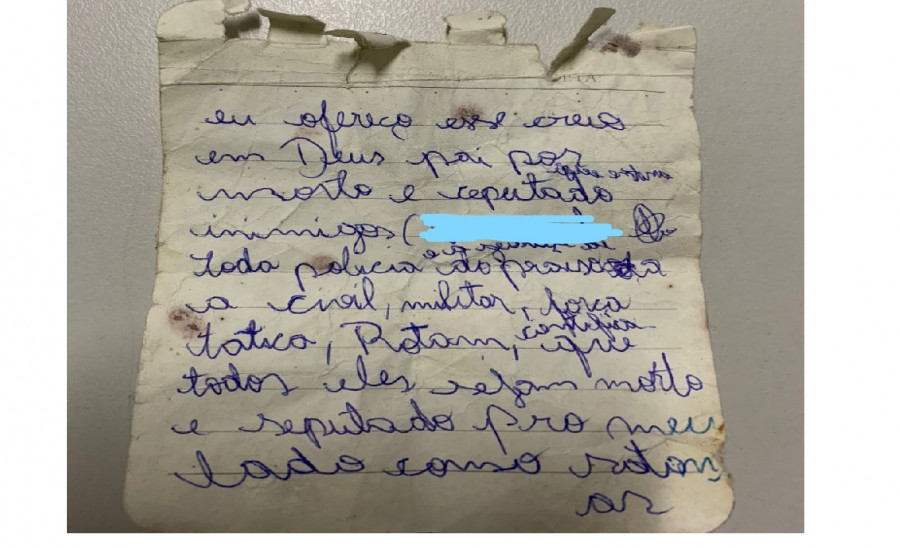 eu ofereço esse creio
em Deus pai por
morto e ceputado
inimigos (
toda policia do
a civil, militar, força
tatica, Rotam, que
todos eles sejam morto
e seputado pro meu
lado como